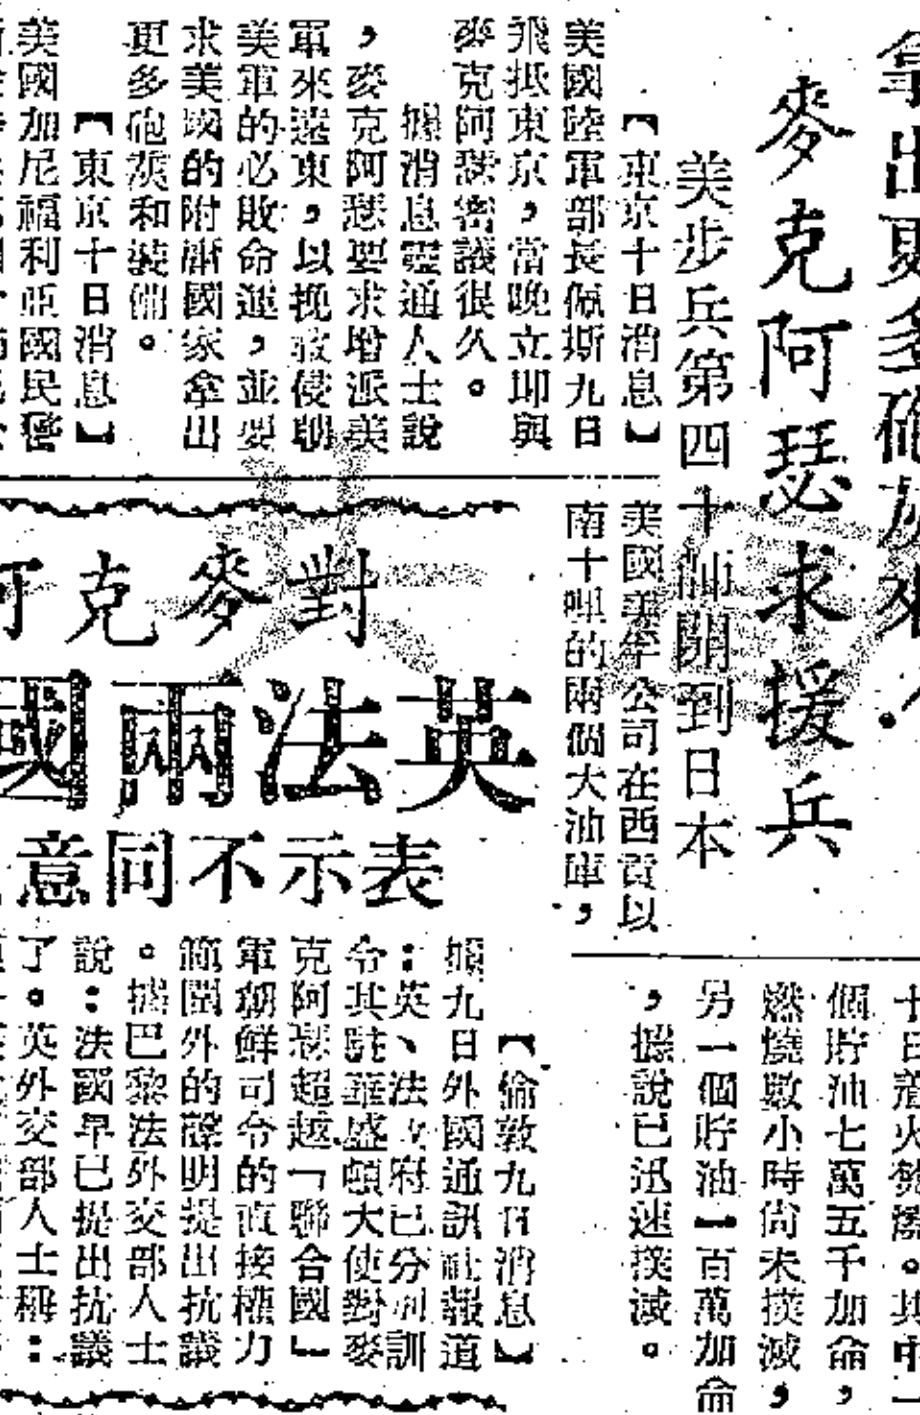 拿出更多砲灰來！
麥克阿瑟求援兵
美步兵第四十師開到日本
【東京十日消息】
美國陸軍部長佩斯九日
飛抵東京，當晚立即與
麥克阿瑟密議很久。
據消息靈通人士說
，麥克阿瑟要求增派美
軍來遠東，以挽救侵朝
美軍的必敗命運，並要
求美國的附庸國家拿出
更多砲灰和裝備。
【東京十日消息】
美國加尼福利亞國民警
美國美孚公司在西貢以
南十哩的兩個大油庫，
十日着火焚燒。其中一
個貯油七萬五千加侖，
燃燒數小時尚未撲滅，
另一個貯油一百萬加侖
，據說已迅速撲滅。
對麥克阿
英法兩國
表示不同意
【倫敦九日消息】
據九日外國通訊社報道
：英、法政府已分別訓
令其駐華盛頓大使對麥
克阿瑟超越「聯合國」
軍朝鮮司令的直接權力
範圍外的聲明提出抗議
。據巴黎法外交部人士
說：法國早已提出抗議
了。英外交部人士稱：